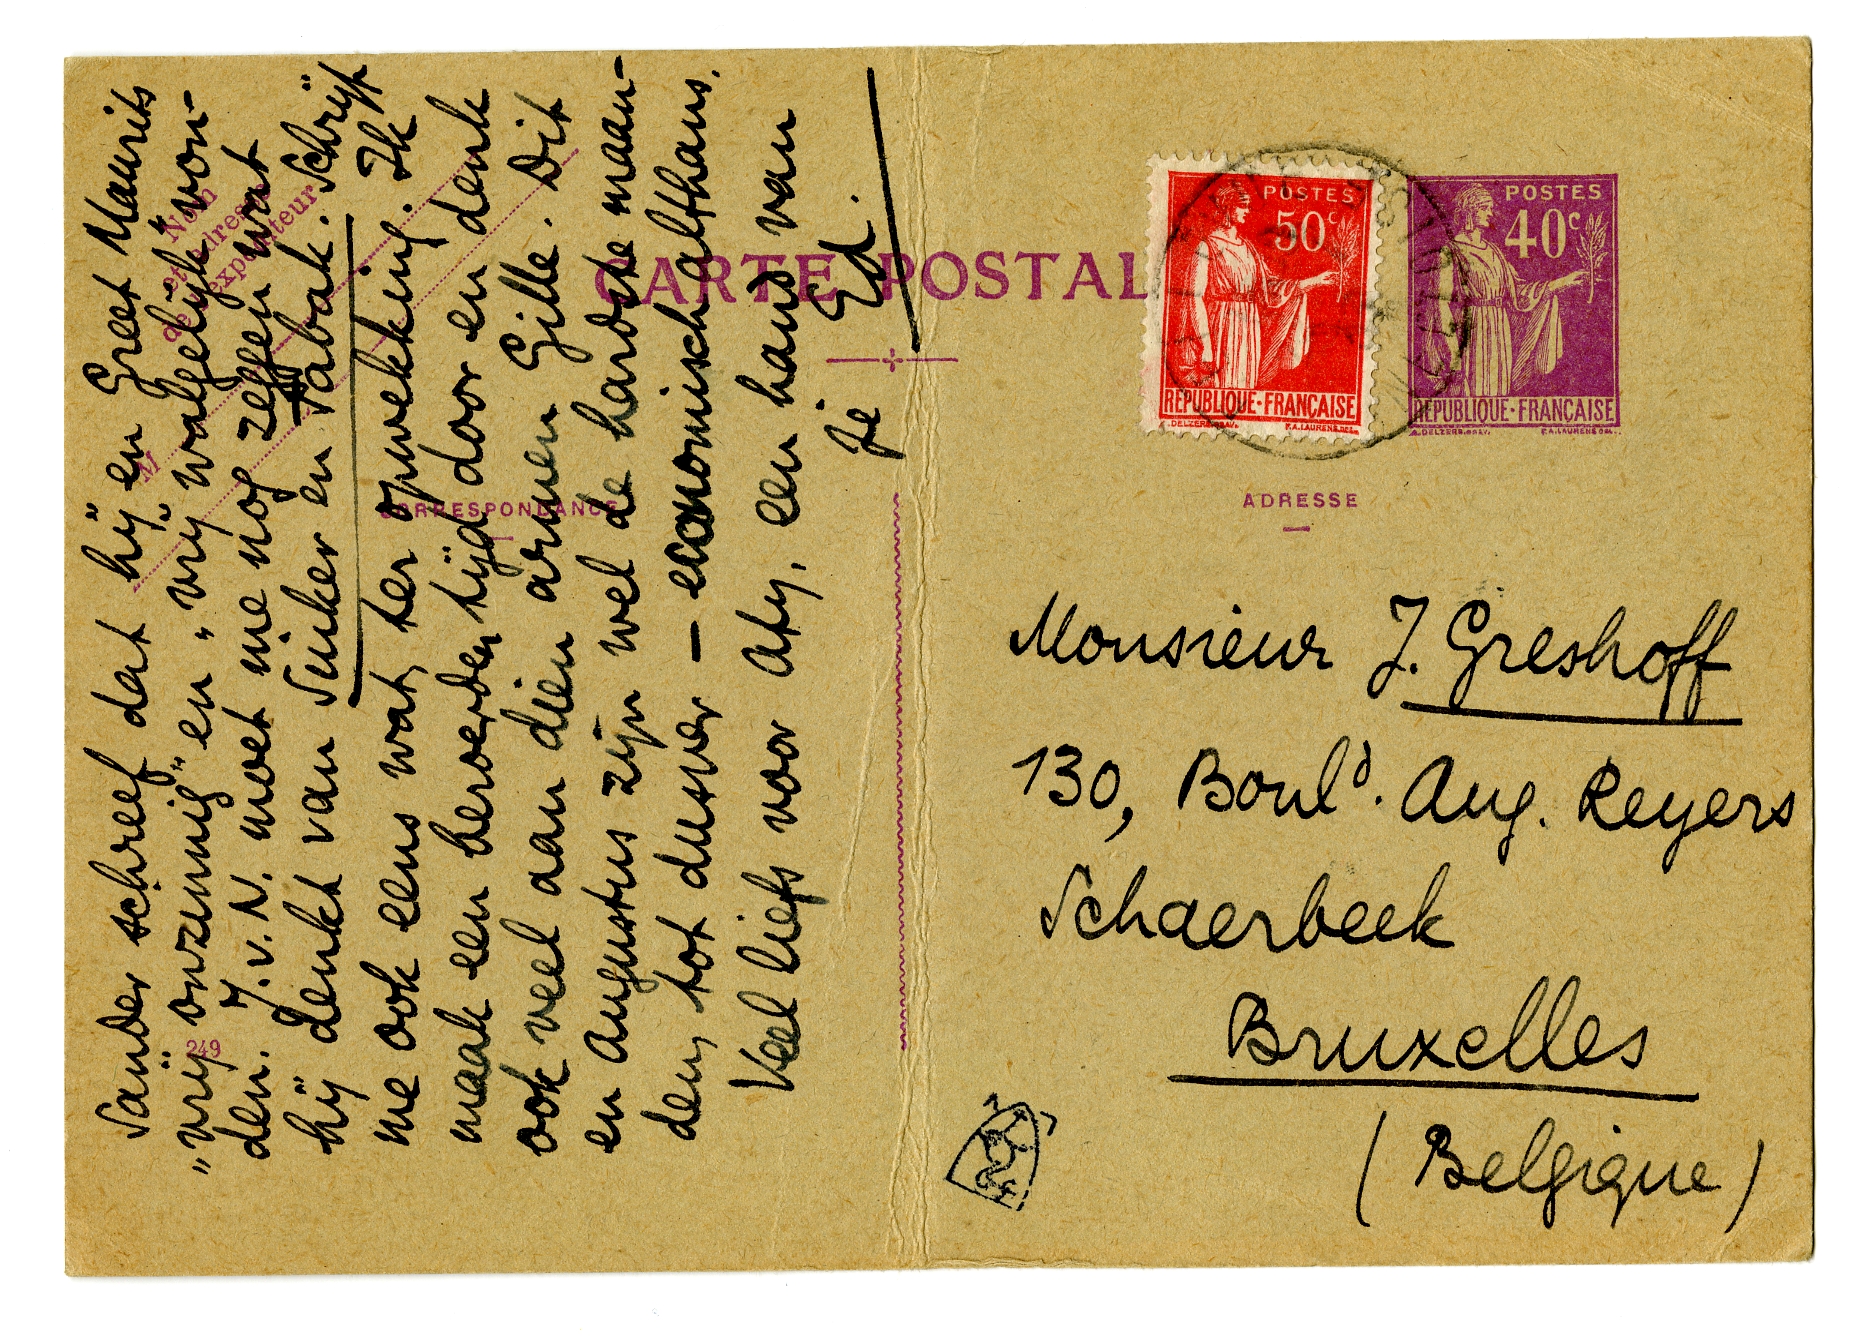 Sander schreef dat hij en Greet Maurits
„vrij onzinnig" en „vrij walgelijk" von-
den. J.v.N. moet me nog zeggen wat
hij denkt van Suiker en Tabak. Schrijf
me ook eens wat, ter opwekking. Ik
maak een beroerden tijd door en denk
ook veel aan dien armen Gille. Dit
en Augustus zijn wel de hardste maan-
den, tot dusver – economisch althans.
Veel liefs voor Aty, een hand van
je Ed.
Nom
et adresse
de l'expéditeur
M
249
CARTE POSTAL
CORRESPONDANCE
POSTES
50c
REPUBLIQUE·FRANÇAISE
DELZERS.GRAV. F.A.LAURENS.DEL.
POSTES
40c
REPUBLIQUE·FRANÇAISE
A.DELZERS.GRAV. F.A.LAURENS DEL.
ADRESSE
Monsieur J. Greshoff
130, Boulᵈ. Aug. Reyers
Schaerbeek
Bruxelles
(Belgique)